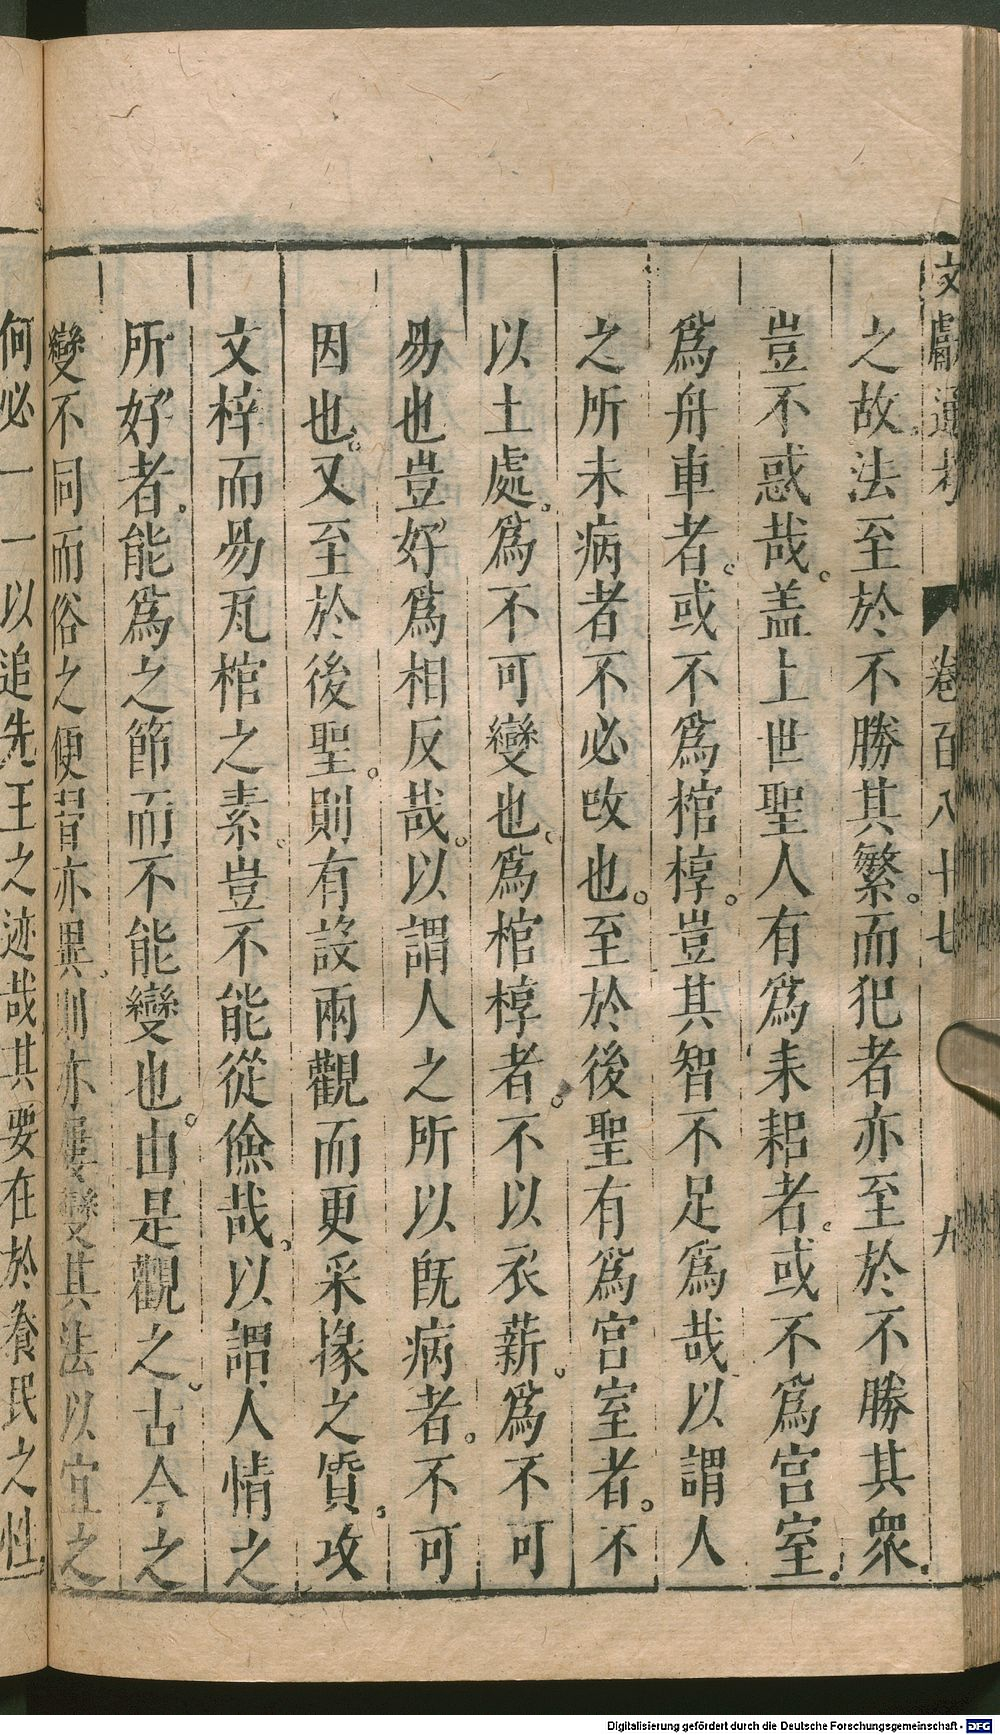 文獻通考 卷百八十七 九
之故法至於不勝其繁。而犯者亦至於不勝其衆。
豈不惑哉。盖上世聖人有爲耒耜者。或不爲宮室。
爲舟車者。或不爲棺椁。豈其智不足爲哉以謂人
之所未病者不必改也。至於後聖有爲宮室者。不
以土處。爲不可變也。爲棺椁者。不以衣薪。爲不可
易也豈好爲相反哉。以謂人之所以既病者。不可
因也。又至於後聖。則有設兩觀而更采椽之質。攻
文梓而易瓦棺之素。豈不能從儉哉。以謂人情之
所好者。能爲之節而不能變也。由是觀之。古今之
變不同而俗之便習亦異。則亦屢變其法以宜之
何必一一以追先王之迹哉其要在於養民之性
Digitalisierung gefördert durch die Deutsche Forschungsgemeinschaft - DFG